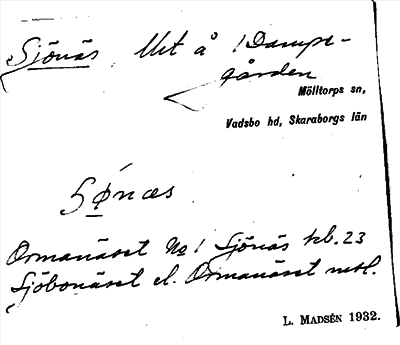 Sjönäs Utt å /Damps-
gården
Mölltorps sn,
Vadsbo hd, Skaraborgs län
Sønæs
Ormanäset No 1 Sjönäs kb. 23
Sjöbonäset el. Ormanäset
L. MADSÉN 1932.